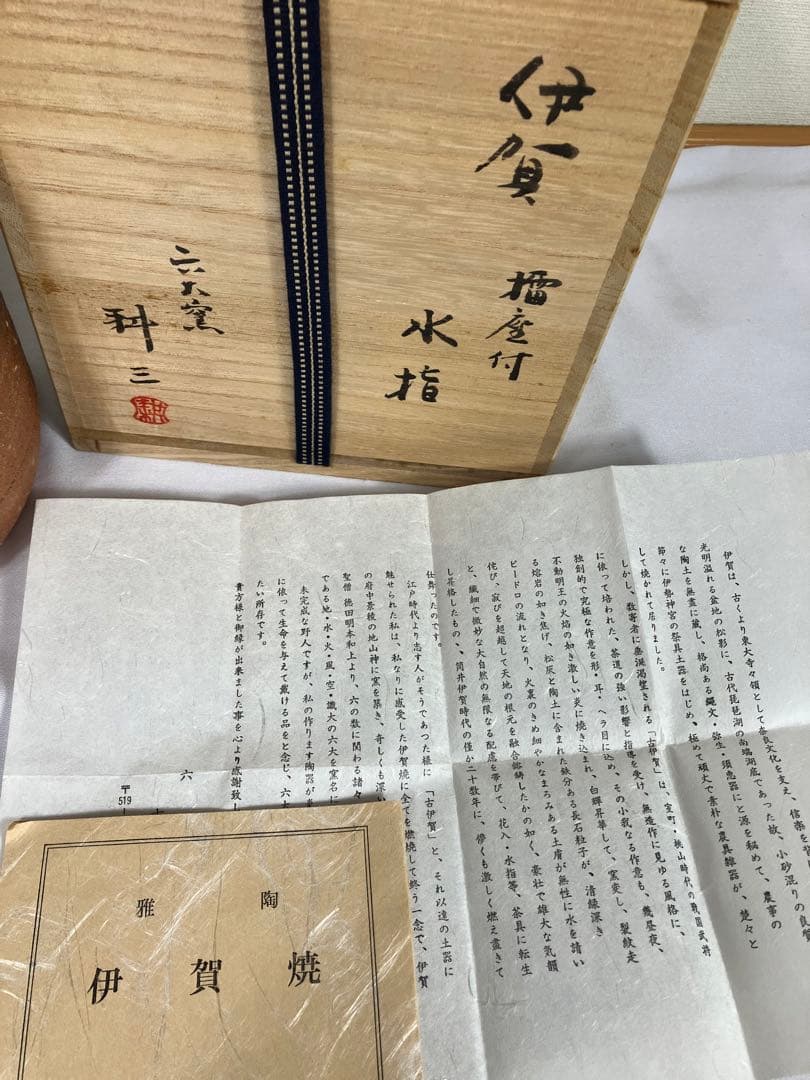 伊賀
擂座付
水指
六大窯
耕三
伊賀は、古くより東大寺々領として奈良文化を支え、信楽を背
光明溢れる盆地の松影に、古代琵琶湖の南端湖底であった故、小砂混りの良質
な陶土を無尽に蔵し、格尚ある縄文・弥生・須恵器にと源を秘めて、農事の
節々に伊勢神宮の祭具土器をはじめ、極めて頑丈で素朴な農具雑器が、楚々と
して焼かれて居りました。
しかし、数寄者に垂涎渇望される「古伊賀」は、室町・桃山時代の戦国武将
に依って培われた、茶道の強い影響と指導を受け、無造作に見ゆる風格に、
独創的で究極な作意を形・耳・ヘラ目に込め、その小我なる作意も、幾昼夜、
不動明王の火焰の如き激しい炎に焼き込まれ、白輝昇華して、窯変し、裂紋走
る熔岩の如き焦げ、松灰と陶土に含まれた鉄分ある長石粒子が、清緑深き
ビードロの流れとなり、火裏のきめ細やかなまろみある土膚が無性に水を請い
侘び、寂びを超越して天地の根元を融合鎔鋳したかの如く、豪壮で雄大な気韻
と、繊細で微妙な大自然の無限なる配慮を帯びて、花入・水指等、茶具に転生
し昇格したもの、、筒井伊賀時代の僅か二十数年に、儚くも激しく燃え尽きて
仕舞ったのです。
江戸時代より志す人がそうであった様に「古伊賀」と、それ以遠の土器に
魅せられた私は、私なりに感受した伊賀焼に全てを燃焼して終う一念で、伊賀
の府中景稜の地山神に窯を築き、奇しくも深い
聖僧 徳田明本和上より、六の数に関わる諸々
である地・水・火・風・空・識大の六大を窯名に
未完成な野人ですが、私の作ります陶器が貴
に依って生命を与えて戴ける品をと念じ、六大
たい所存です。
貴方様と御縁が出来ました事を心より感謝致し
六
〒519
陶雅
伊賀焼